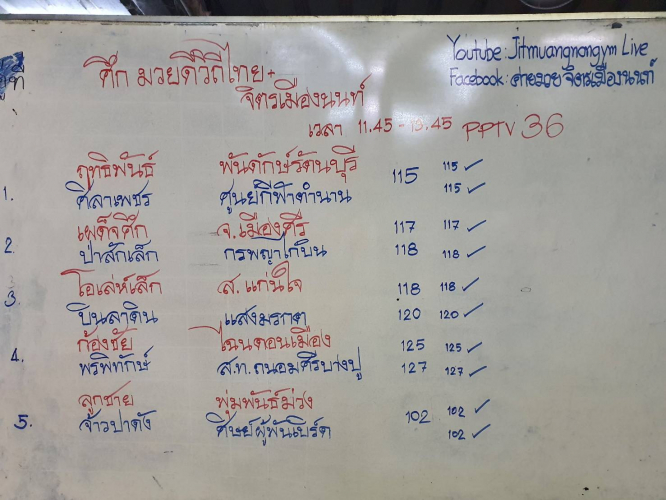 Youtube : Jitmuangnongym Live
Facebook : ค่ายมวยจิตรเมืองนนท์
คู่ที่
ศึก มวยดีวิถีไทย +
จิตรเมืองนนท์
เวลา 11.45 - 13.45 PPTV 36
ฤทธิพันธ์ พันดักษ์รัตนบุรี 115 115 ✓
1. ศิลาเพชร ศูนย์กีฬาตำนาน 115 ✓
เผด็จศึก จ.เมืองศรี 117 117 ✓
2. ป่าสักเล็ก กรพญาไก่บิน 118 118 ✓
3. โอเล่ห์เล็ก ส. แก่นใจ 118 118 ✓
บินลาดิน แสงมรกต 120 120 ✓
ก้องชัย ไฉนดอนเมือง 125 125 ✓
4. พรพิทักษ์ ส.ท.ถนอมศรีบางปู 127 127 ✓
ลูกชาย พุ่มพันธ์ม่วง 102 102 ✓
5. จ้าวป่าดัง ศิษย์ผู้พันเบิร์ด 102 ✓